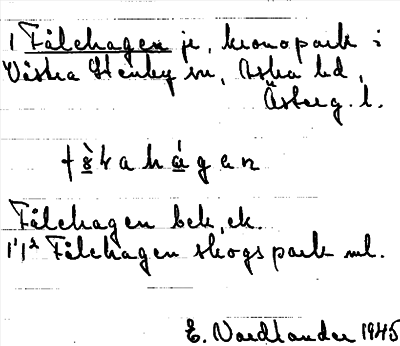 1 Fålehagen je, kronopark i
Västra Stenby sn, Aska hd,
Österg. l.
få̀lahá̱gan
Fålehagen bek, ek.
1'1² Fålehagen skogspark ml.
E. Nordlander 1945